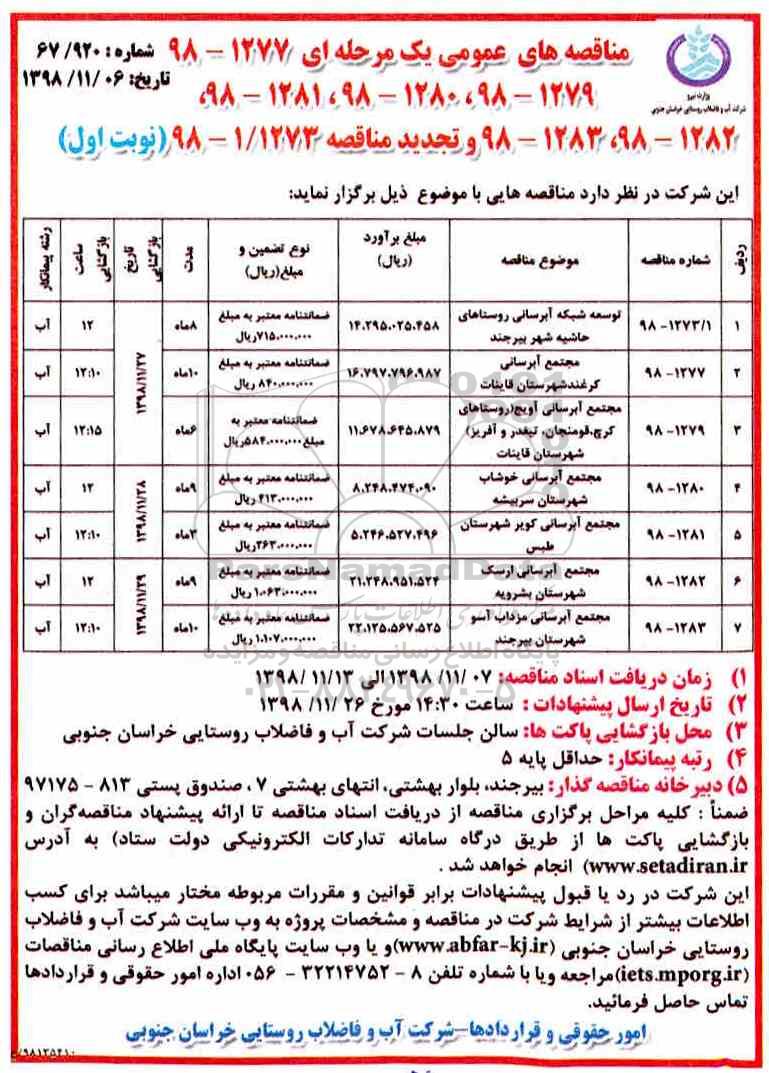 مناقصه های عمومی یک مرحله ای ۱۲۷۷ – ۹۸
۱۲۷۹ – ۹۸، ۱۲۸۰ – ۹۸، ۱۲۸۱ – ۹۸،
۱۲۸۲ – ۹۸، ۱۲۸۳ – ۹۸ و تجدید مناقصه ۱/۱۲۷۳ – ۹۸ (نوبت اول)
شماره : ۶۷/۹۲۰
تاریخ: ۱۳۹۸/۱۱/۰۶
وزارت نیرو
شرکت آب و فاضلاب روستایی خراسان جنوبی
این شرکت در نظر دارد مناقصه هایی با موضوع ذیل برگزار نماید:
ردیف | شماره مناقصه | موضوع مناقصه | مبلغ برآورد (ریال) | نوع تضمین و مبلغ(ریال) | مدت | تاریخ بازگشایی | ساعت بازگشایی | رشته پیمانکار
۱ | ۹۸ -۱۲۷۳/۱ | توسعه شبکه آبرسانی روستاهای حاشیه شهر بیرجند | ۱۴،۲۹۵،۰۲۵،۴۵۸ | ضمانتنامه معتبر به مبلغ ۷۱۵،۰۰۰،۰۰۰ریال | ۸ماه | ۱۳۹۸/۱۱/۲۷ | ۱۲ | آب
۲ | ۹۸ -۱۲۷۷ | مجتمع آبرسانی کرغندشهرستان قاینات | ۱۶،۷۹۷،۷۹۶،۹۸۷ | ضمانتنامه معتبر به مبلغ ۸۴۰،۰۰۰،۰۰۰ ریال | ۱۰ماه | ۱۲:۱۰ | آب
۳ | ۹۸ -۱۲۷۹ | مجتمع آبرسانی آویج(روستاهای کرج،قومنجان، تیغدر و آفریز) شهرستان قاینات | ۱۱،۶۷۸،۶۴۵،۸۷۹ | ضمانتنامه معتبر به مبلغ۵۸۴،۰۰۰،۰۰۰ریال | ۶ماه | ۱۲:۱۵ | آب
۴ | ۹۸ -۱۲۸۰ | مجتمع آبرسانی خوشاب شهرستان سربیشه | ۸،۲۴۸،۴۷۴،۰۹۰ | ضمانتنامه معتبر به مبلغ ۴۱۳،۰۰۰،۰۰۰ ریال | ۹ماه | ۱۳۹۸/۱۱/۲۸ | ۱۲ | آب
۵ | ۹۸ -۱۲۸۱ | مجتمع آبرسانی کویر شهرستان طبس | ۵،۲۴۶،۵۲۷،۴۹۶ | ضمانتنامه معتبر به مبلغ ۲۶۳،۰۰۰،۰۰۰ریال | ۳ماه | ۱۲:۱۰ | آب
۶ | ۹۸ -۱۲۸۲ | مجتمع آبرسانی ارسک شهرستان بشرویه | ۲۱،۲۴۸،۹۵۱،۵۲۴ | ضمانتنامه معتبر به مبلغ ۱،۰۶۳،۰۰۰،۰۰۰ ریال | ۹ماه | ۱۳۹۸/۱۱/۲۹ | ۱۲ | آب
۷ | ۹۸ -۱۲۸۳ | مجتمع آبرسانی مزداب آسو شهرستان بیرجند | ۲۲،۱۲۵،۵۶۷،۵۲۵ | ضمانتنامه معتبر به مبلغ ۱،۱۰۷،۰۰۰،۰۰۰ ریال | ۱۰ماه | ۱۲:۱۰ | آب
ParsNamadData
پایگاه اطلاع رسانی مناقصه و مزایده
۰۲۱-۸۸۳۴۹۶۷۰-۵
۱) زمان دریافت اسناد مناقصه: ۰۷ /۱۱/ ۱۳۹۸ الی ۱۳۹۸/ ۱۱/۱۳
۲) تاریخ ارسال پیشنهادات : ساعت ۱۴:۳۰ مورخ ۲۶ /۱۱/ ۱۳۹۸
۳) محل بازگشایی پاکت ها: سالن جلسات شرکت آب و فاضلاب روستایی خراسان جنوبی
۴) رتبه پیمانکار: حداقل پایه ۵
۵) دبیرخانه مناقصه گذار: بیرجند، بلوار بهشتی، انتهای بهشتی ۷ ، صندوق پستی ۸۱۳ – ۹۷۱۷۵
ضمناً : کلیه مراحل برگزاری مناقصه از دریافت اسناد مناقصه تا ارائه پیشنهاد مناقصه‌گران و
بازگشایی پاکت ها از طریق درگاه سامانه تدارکات الکترونیکی دولت ستاد) به آدرس
www.setadiran.ir) انجام خواهد شد .
این شرکت در رد یا قبول پیشنهادات برابر قوانین و مقررات مربوطه مختار میباشد برای کسب
اطلاعات بیشتر از شرایط شرکت در مناقصه و مشخصات پروژه به وب سایت شرکت آب و فاضلاب
روستایی خراسان جنوبی (www.abfar-kj.ir)و یا وب سایت پایگاه ملی اطلاع رسانی مناقصات
(iets.mporg.ir)مراجعه ویا با شماره تلفن ۸ – ۳۲۲۱۴۷۵۲ – ۰۵۶ اداره امور حقوقی و قراردادها
تماس حاصل فرمائید.
امور حقوقی و قراردادها–شرکت آب و فاضلاب روستایی خراسان جنوبی